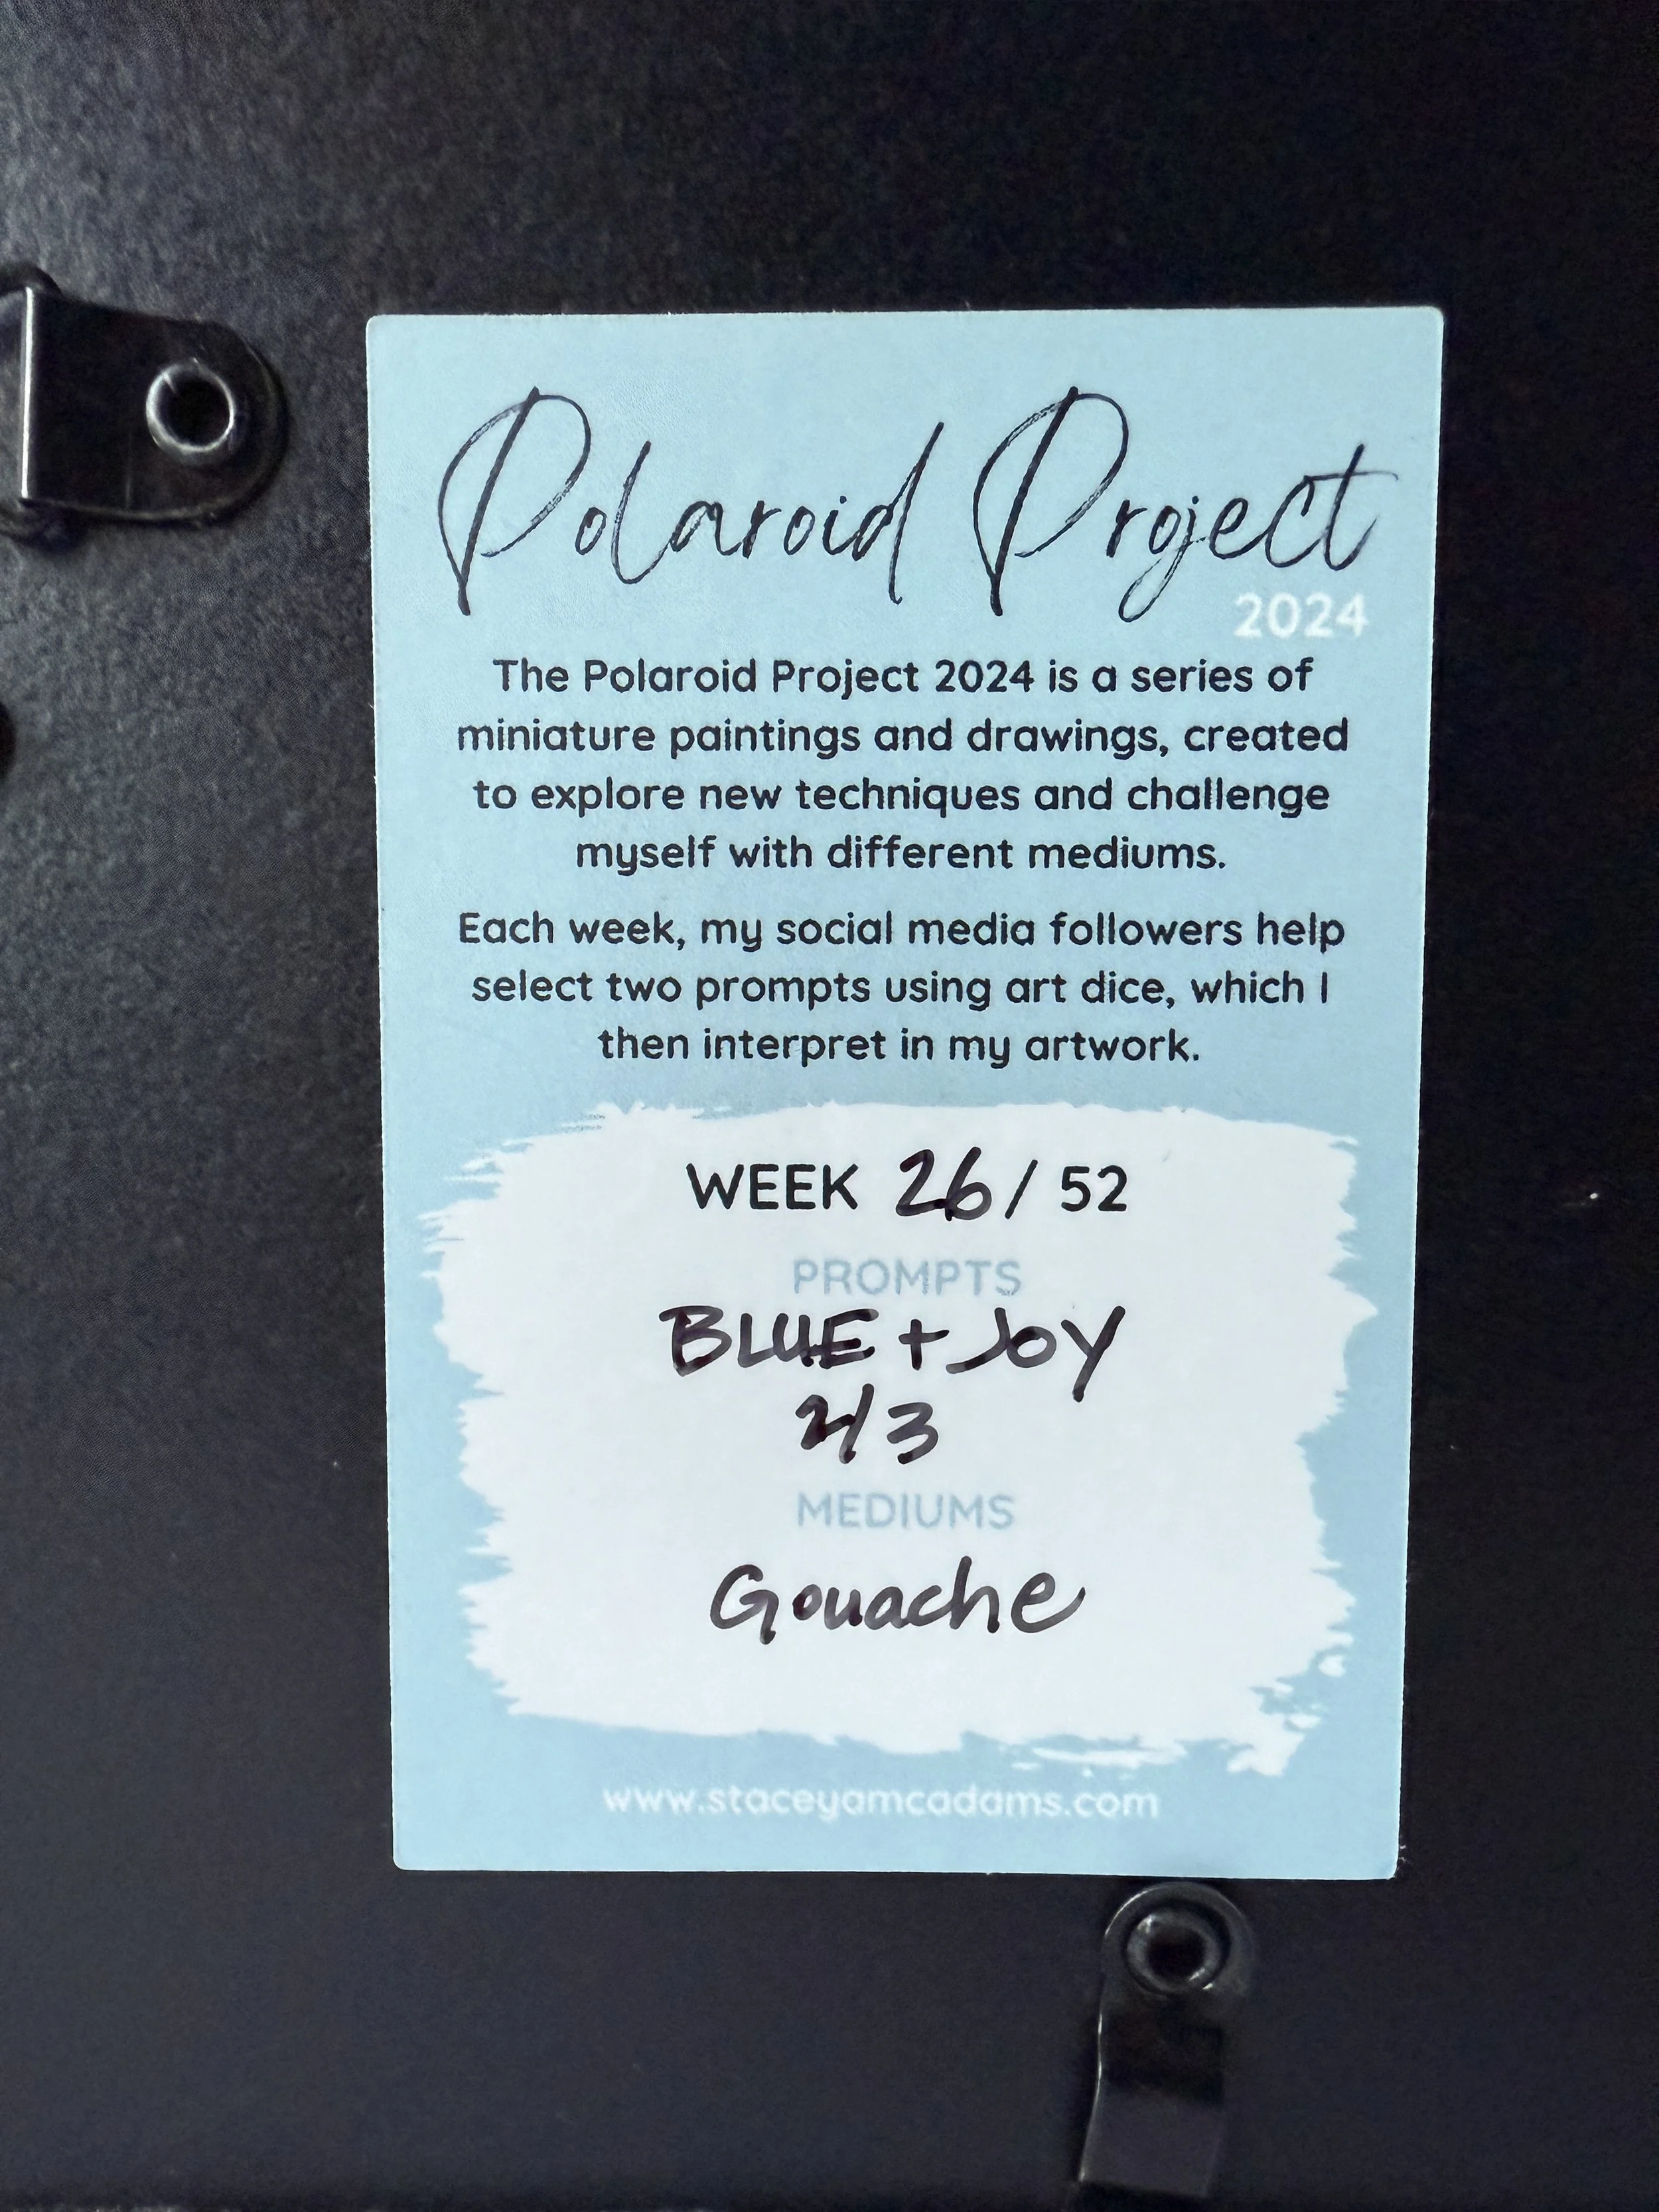 Polaroid Project
2024
The Polaroid Project 2024 is a series of
miniature paintings and drawings, created
to explore new techniques and challenge
myself with different mediums.
Each week, my social media followers help
select two prompts using art dice, which I
then interpret in my artwork.
WEEK 26 / 52
PROMPTS
BLUE + JOY
2/3
MEDIUMS
Gouache
www.staceyamcadams.com